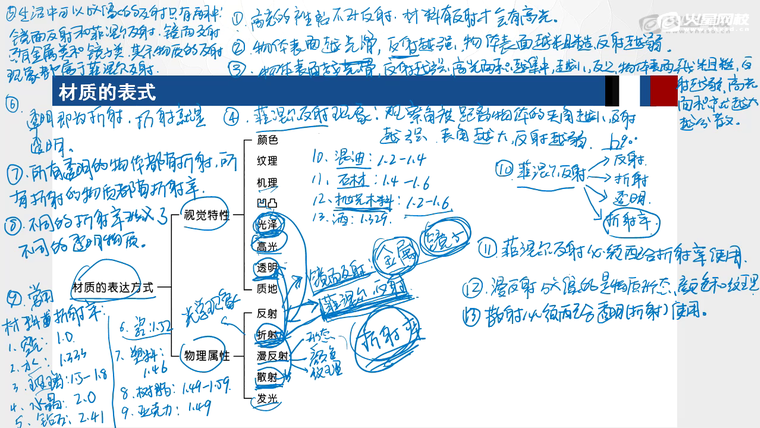 ⑤生活中可以的反射只有两种
镜面反射和菲涅尔反射。镜面反射
只有金属类和镜子类,其余物质的反射
现象都属于菲涅尔反射.
①高光的衰帖不开反射.材料有反射才会有高光。
②物体表面越光滑,反射越强,物体表面越粗糙,反射越弱。
③物体表面越光滑,反射越强,高光面积越集中,越小,反之,物体表面越粗糙,反
射越弱,高光
面积就越大
越分散。
火星网校
材质的表达
⑥透明即为折射,折射就是
透明。
④菲涅尔反射现象:观察角度距离物体的夹角越小,反射
越强,夹角越大,反射越弱.
⑦所有透明的物体都有折射,所
有折射的物质都有折射率.
⑧不同的折射率
不同的透明物质。
颜色
纹理
机理
凹凸
光泽
高光
透明
质地
视觉特性
材质的表达方式
反射
折射
漫反射
散射
发光
物理属性
10、混油:1.2-1.4
11、石材:1.4-1.6
12、抛光木料:1.2-1.6
13、酒:1.329.
⑩菲涅尔反射
反射.
折射
透明
折射率.
镜面反射
金属
镜子
菲涅尔反射
光影现象
折射率
形态
颜色
纹理
⑪菲涅尔反射必须配合折射率使用.
⑫漫反射的是物质形态、颜色和纹理
⑬散射必须配合透明(折射)使用。
⑨常用
材料折射率:
1、空气:1.0
2、水:1.333
3、玻璃:1.5-1.8
4、水晶:2.0
5、钻石:2.41
6、瓷:1.52
7、塑料:
1.46
8、树脂:1.49-1.59.
9、亚克力:1.49